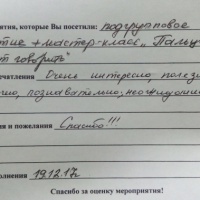 ятия, которые Вы посетили: подгрупповое
тие + мастер-класс „Пальчи
т говорить"
ечатления Очень интересно, полезн
но, познавательно, неожиданн
я и пожелания Спасибо!!!
олнения 19.12.17г
Спасибо за оценку мероприятия!